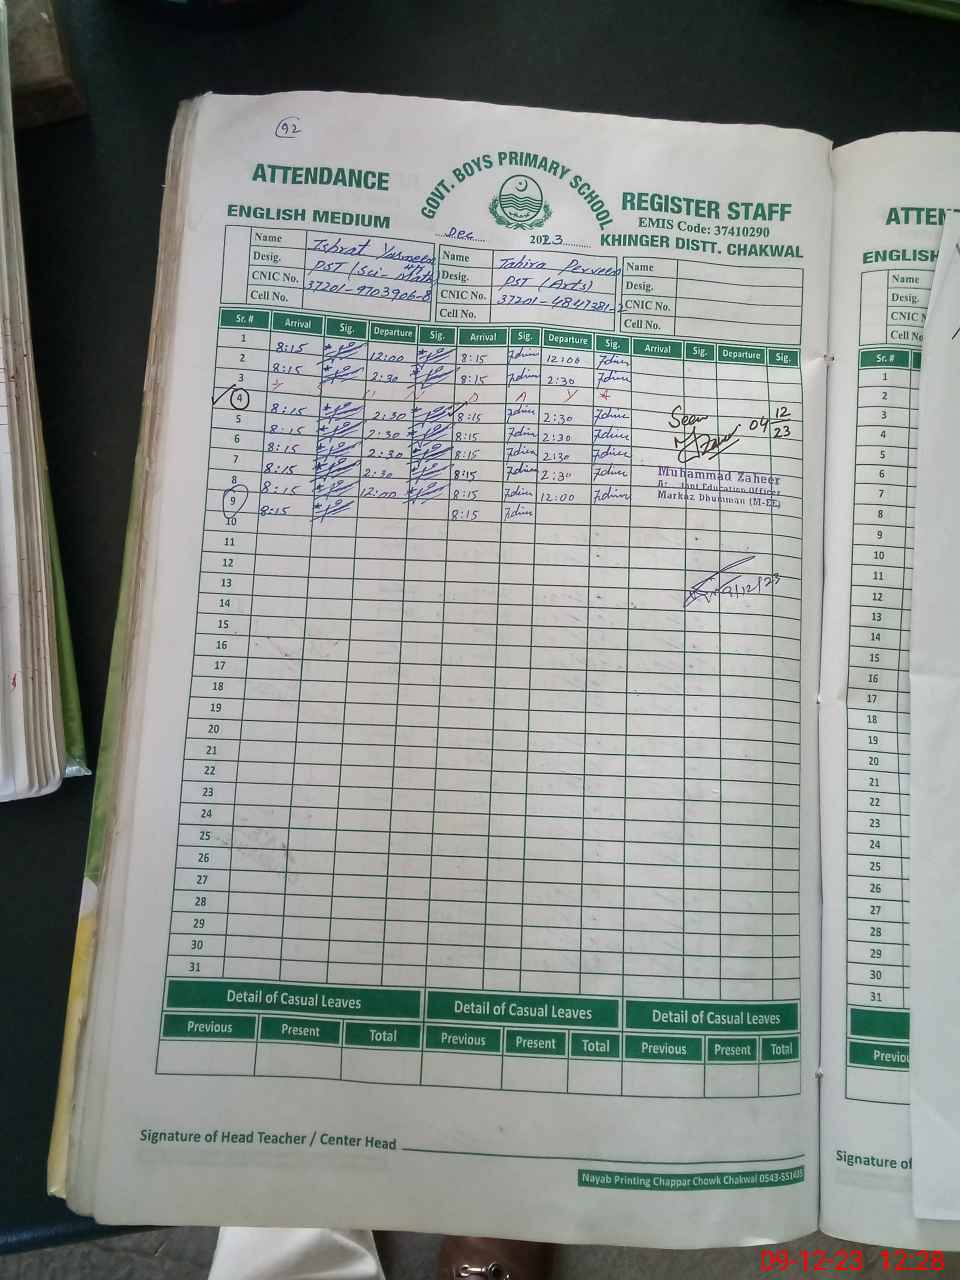 92
GOVT. BOYS PRIMARY SCHOOL
ATTENDANCE REGISTER STAFF
EMIS Code: 37410290
ENGLISH MEDIUM Dec 2023 KHINGER DISTT. CHAKWAL
Name Ishrat Yasmeen Name Tahira Perveen Name
Desig. PST (Sci- Math) Desig. PST (Arts) Desig.
CNIC No. 37201-9703906-8 CNIC No. 37201-4841381-2 CNIC No.
Cell No. Cell No. Cell No.
Sr. # Arrival Sig. Departure Sig. Arrival Sig. Departure Sig. Arrival Sig. Departure Sig.
1 8:15 12:00 8:15 12:00
2 8:15 2:30 8:15 2:30
3 S U N D A Y
4 8:15 2:30 8:15 2:30
5 8:15 2:30 8:15 2:30
6 8:15 2:30 8:15 2:30
7 8:15 2:30 8:15 2:30
8 8:15 12:00 8:15 12:00
9 8:15 8:15
10
11
12
13
14
15
16
17
18
19
20
21
22
23
24
25
26
27
28
29
30
31
Seen
04 12/23
Muhammad Zaheer
Education Officer
Markaz Dhumman (M-EE)
9/12/23
Detail of Casual Leaves Detail of Casual Leaves Detail of Casual Leaves
Previous Present Total Previous Present Total Previous Present Total
Signature of Head Teacher / Center Head
Nayab Printing Chappar Chowk Chakwal 0543-551
ATTEN
ENGLISH
Name
Desig.
CNIC N
Cell No
Sr. #
1
2
3
4
5
6
7
8
9
10
11
12
13
14
15
16
17
18
19
20
21
22
23
24
25
26
27
28
29
30
31
Previou
Signature of
09-12-23 12:28